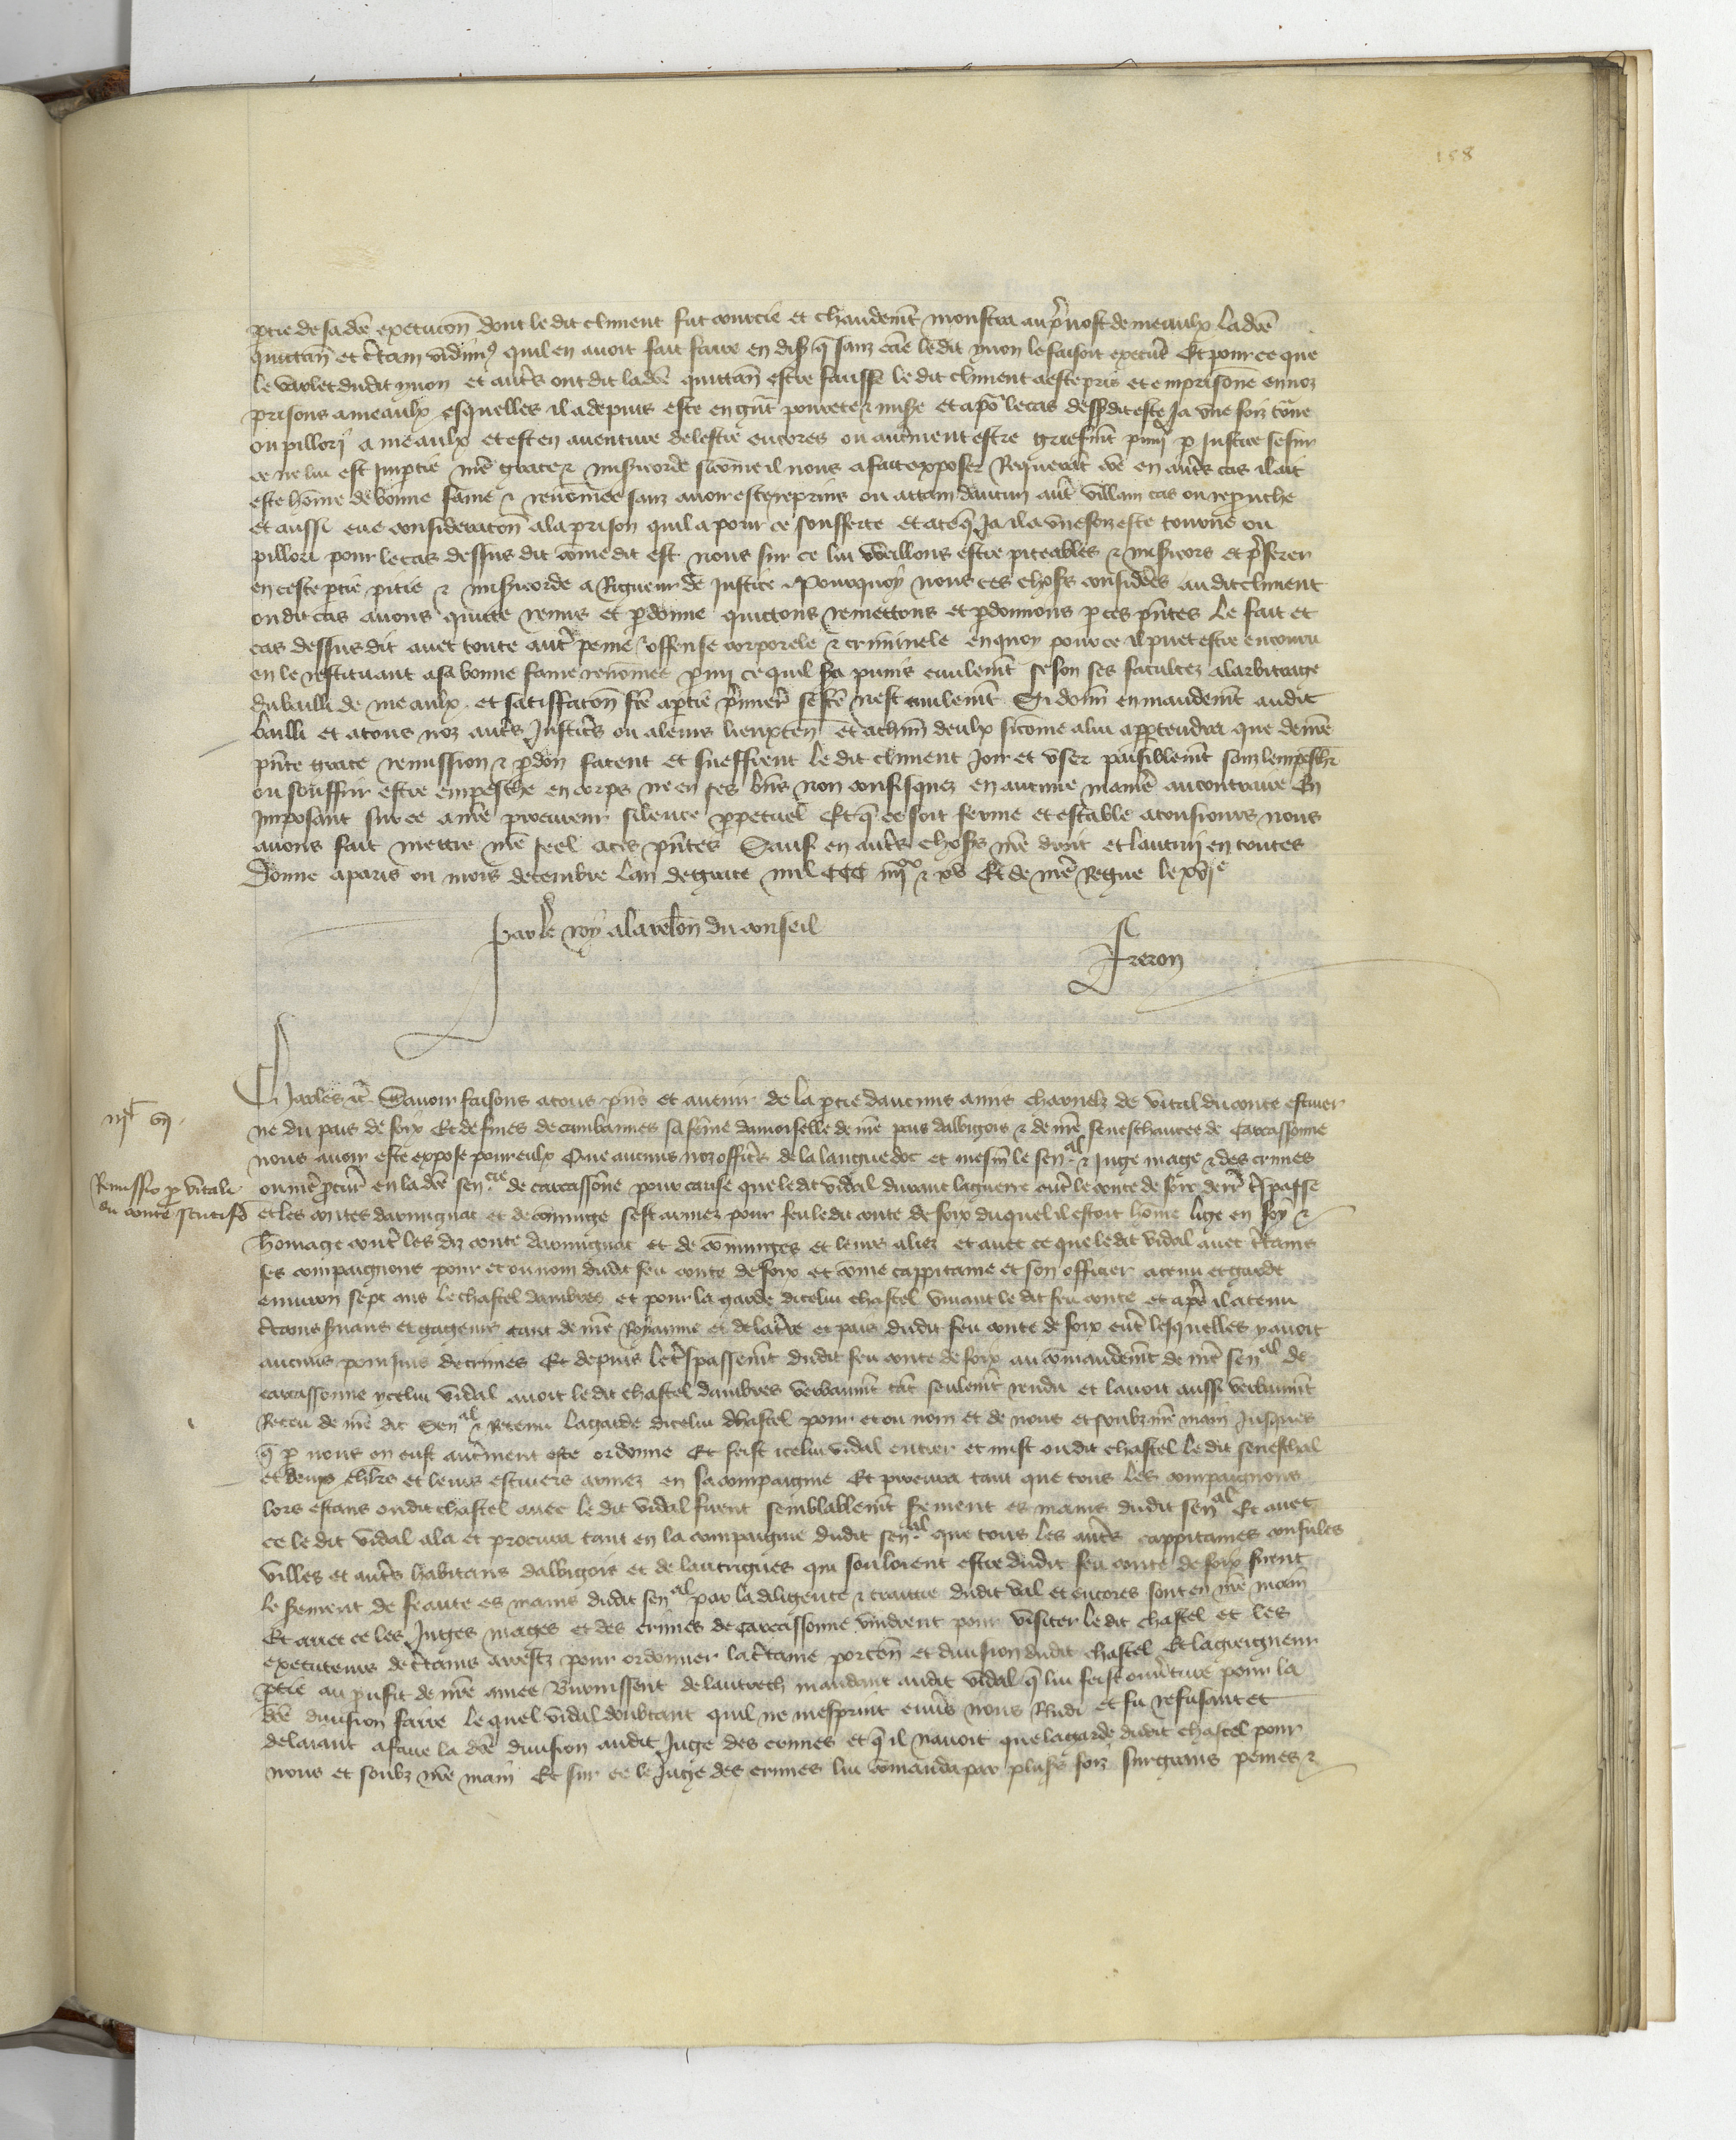 158
ptie de sa dce execucion dont le dit climent fut courcie et chaudemt monstra au pvost de meaulx la dce
quittan et ctain vidim9 quil en avoit fait faire en dist q sanz cause le dit ymon le faisoit executer Et pour ce que
le varlet dudit ymon et autrs ont dit la dce quittan estre fausse le dit climent a este pris et emprisone en noz
prisons a meaulx esquelles il a depuis este en gnt povrete & misere et apres le cas dessusdit este ja une foiz tourne
ou pillory a meaulx et est en aventure de lestre encores ou autrement estre griefmt puny p justice se sur
ce ne lui est impartie nre grace & misericorde sicome il nous a fait exposer Requerant come en autrs cas il ait
este home de bonne fame & renomee sanz avoir este reprins ou attaint daucun autre villain cas ou reprouche
et aussi eue consideracion a la prison quil a pour ce soufferte et ace q ja il a une foiz este tourne ou
pillori pour le cas dessus dit come dit est nous sur ce lui vueillons estre piteables & misericors et pferer
en ceste ptie pitie & misericorde a Rigueur de justice Pourquoy nous ces choses considerees au dit climent
ou dit cas avons quitte remis et pdonne quictons remettons et pdonnons p ces pntes le fait et
cas dessus dit avec toute autre peine & offense corporele & criminele en quoy pour ce il puet estre encouru
en le restituant a sa bonne fame renomee pmy ce quil sera punis civilemt selon ses facultez a larbitrage
du bailli de meaulx et satisfacion fce a ptie pmier se fce nest civilemt Si donn en mandemt au dit
bailli et a tous noz autrs justicrs ou a leurs lieuxten et a chun deulx sicome a lui apptendra que de nre
pnte grace remission & pdon facent et sueffrent le dit climent joir et user paisiblemt sanz lempeschr
ou souffrir estre empesche en corps ne en ses bns non confisquez en aucune maniere au contraire En
imposant sur ce a nre procureur silence ppetuel Et q ce soit ferme et estable a tousiours nous
avons fait mettre nre seel a ces pntes Sauf en autrs choses nre droit et lautruy en toutes
Donne a paris ou mois decembre lan de grace mil CCC iiiixx & xv Et de nre Regne le xvie
Par le roy a la relon du conseil
Freron
Charles &c Savoir faisons a tous pns et avenir de la ptie daucuns amis charnelz de vital du conte escuier
ne du pais de foix Et de fines de cambaines sa feme damoiselle de nre pais dalbigois & de nre seneschaucee de Carcassonne
nous avoir este expose pour eulx Que aucuns noz officrs de la languedoc et mesm le senal & juge mage & des crimes
ou nre pcur en la dce sencie de carcassone pour cause que le dit vidal durant la guerre entre le conte de foix derr trspasse
et les contes darmignac et de cominge sest armez pour feu le dit conte de foix duquel il estoit home lige en foy &
homage contre les diz conte darmignac et de cominges et leurs aliez et avec ce que le dit vidal avec ctains
ses compaignons pour et ou nom dudit feu conte de foix et come cappitaine et son officier a tenu et garde
environ sept ans le chastel dambres et pour la garde dicelui chastel vivant le dit feu conte et aprs il a tenu
ctains servans et gagiers tant de nre Royaume et de la tre et pais dudit feu conte de foix entre lesquelles y avoit
aucuns pour juis de crimes Et depuis le trspassemt dudit feu conte de foix au comandemt de nre senal de
carcassonne ycelui vidal avoit le dit chastel dambres verbaumt tat seulemt rendu et lavoit aussi verbaumt
Receu de nre dit Senal & Retenu la garde dicelui chastel pour et ou nom et de nous et soubz nre main jusques
q p nous en eust autrement este ordonne Et feist icelui vidal entrer et mist ou dit chastel le dit seneschal
et deux chlrs et leurs escuiers armez en sa compaignie Et procura tant que tous les compaignons
lors estans ou dit chastel avec le dit vidal firent semblablemt serment es mains dudit senal Et avec
ce le dit vidal ala et procura tant en la compaignie dudit senal que tous les autrs cappitaines consules
villes et autrs habitans dalbigois et de lautrigues qui souloient estre dudit feu conte de foix firent
le serment de feaute es mains dudit senal par la diligente & traittie dudit vidal et encores sont en nre main
Et avec ce les juges mages et des crimes de Carcassonne vindrent pour visiter le dit chastel et les
executeurs de ctains arrestz pour ordonner la ctaine porcion et division dudit chastel Et la greigneur
ptie au pufit de nre amee Burnissent de lautrech mandant audit vidal q lui feist ouverture pour la
dce division faire Le quel vidal doubtant quil ne mesprint envers nous Rendi et fu refusant et
delaiant a faire la dce division audit juge des crimes et q il navoit que la garde dudit chastel pour
nous et soubz nre main Et sur ce le juge des crimes lui comanda par plusrs foiz sur grans peines &
Remissio p vitali
du conte scutifo